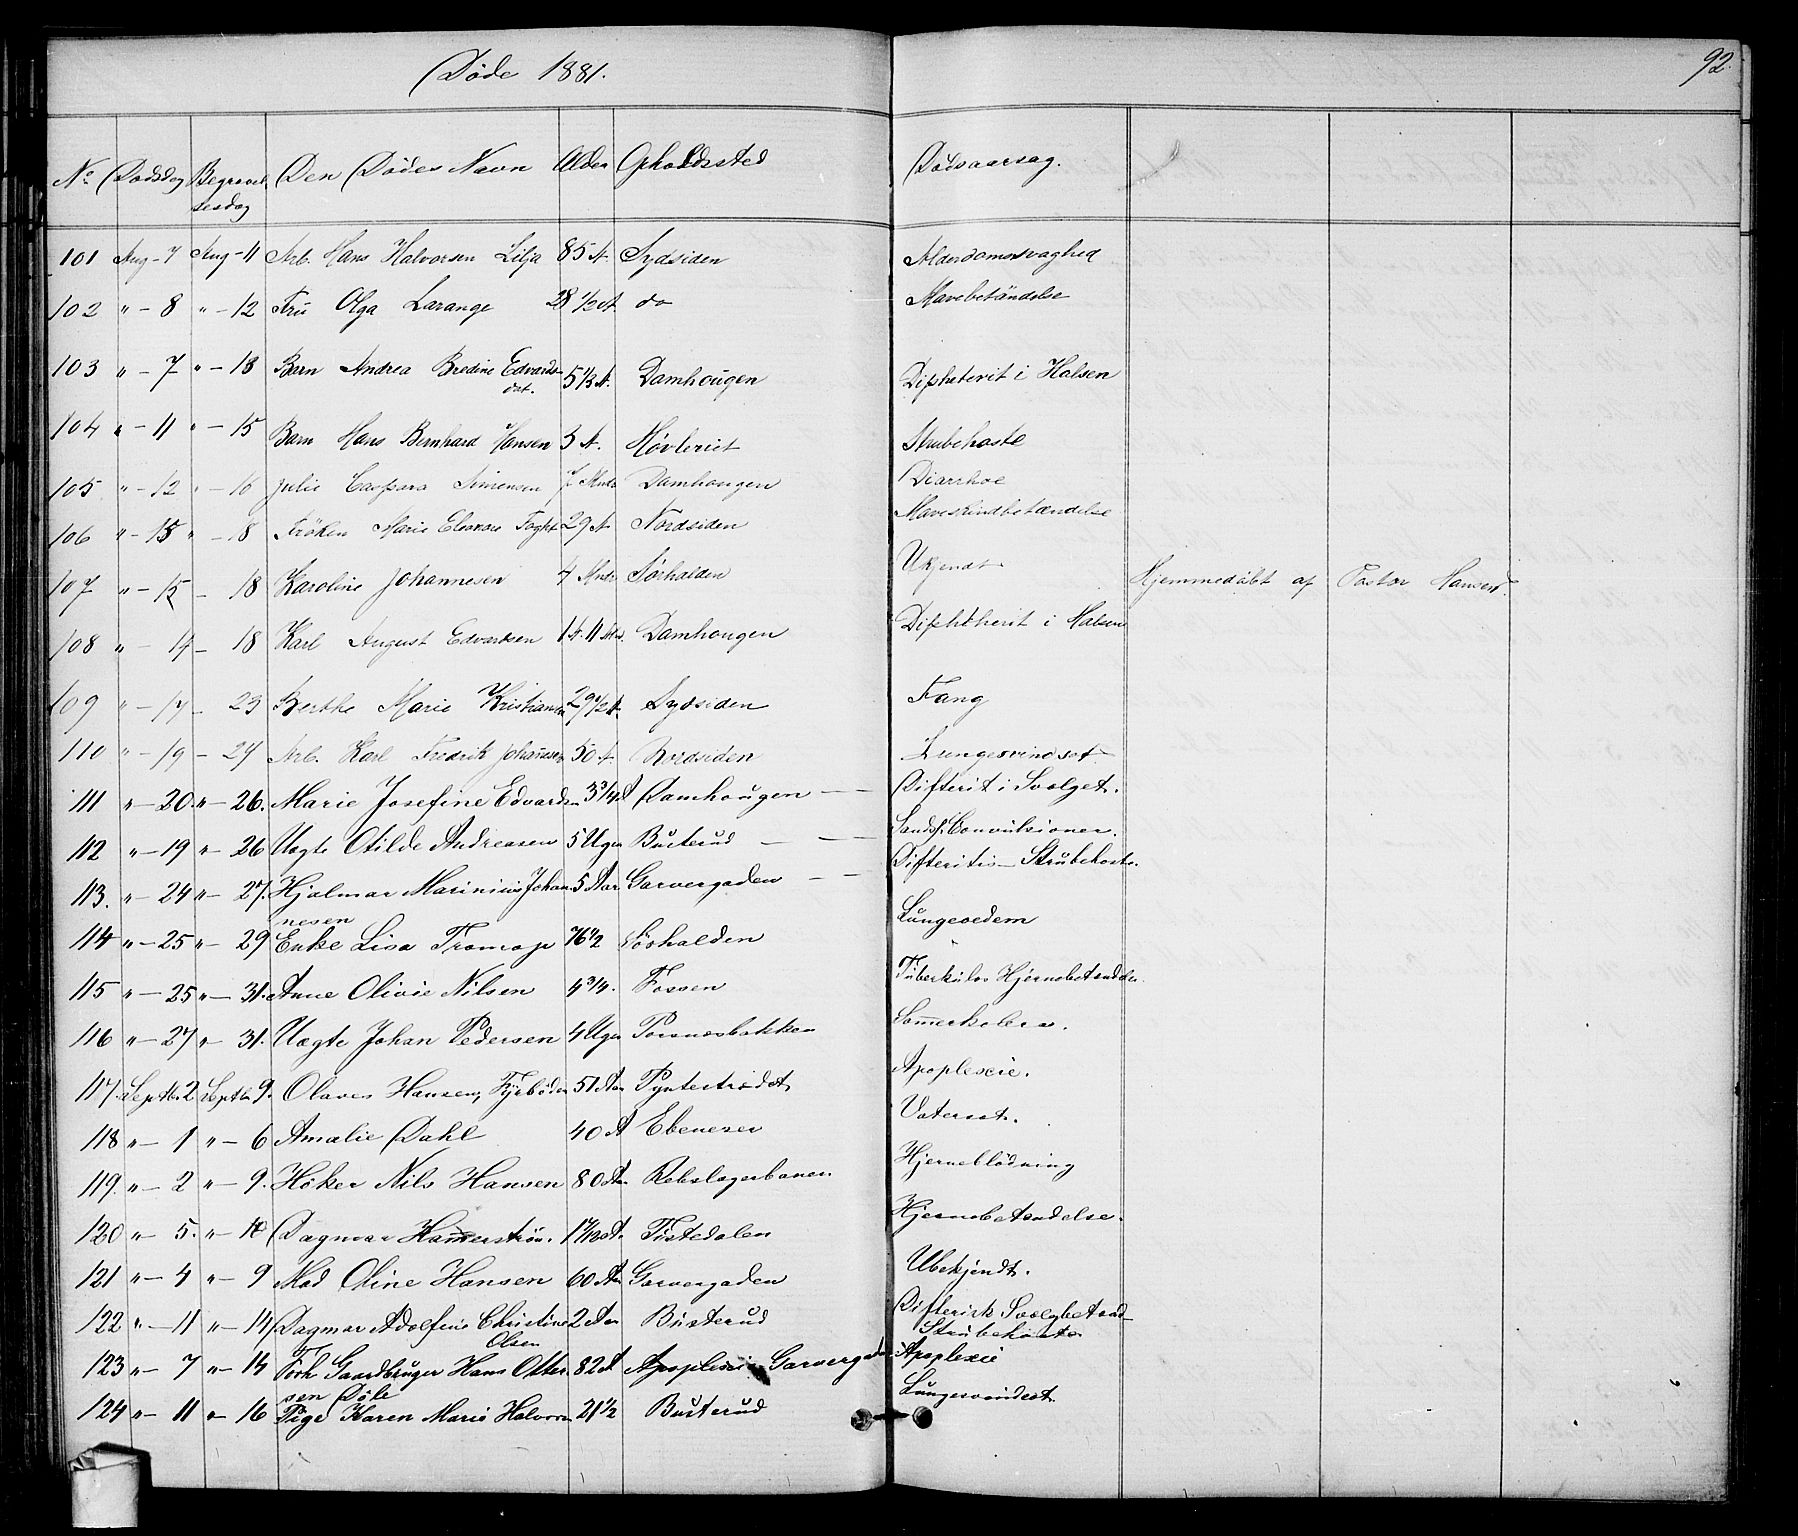 Døde 1881.
92.
No Dødsdag Begravelsesdag Den Dødes Navn Alder Opholdssted Dødsaarsag.
101 Aug - 7 Aug - 11 Arb. Hans Halvorsen Lilja 85 A. Sydsiden Alderdomssvaghed
102 " - 8 " - 12 Fru Olga Larange 28 1/2 A. do Mavebetändelse
103 " - 7 " - 13 Barn Andrea Bredine Edvardsdat. 5 1/3 A. Damhougen Diphterit i Halsen
104 " - 11 " - 15 Barn Hans Bernhard Hansen 3 A. Høvleriet Strubehoste
105 " - 12 " - 16 Julie Caspara Simensen 7 Mndr Damhougen Diarrhoe
106 " - 15 " - 18 Frøken Marie Eleonore Foght 29 A. Nordsiden
107 " - 15 - 18 Karoline Johannesen 4 Mndr Sørhalden Ukjendt Hjemmedøbt af Pastor Hansen.
108 " - 14 - 18 Karl August Edvardsen 1 A. 11 Mdr. Damhougen Diphtherit i Halsen
109 " - 17 - 23 Berthe Marie Kristiansen 29 1/2 A. Sydsiden Fang
110 " - 19 - 24 Arb. Karl Fredrik Johansen 50 A. Nordsiden Lungesvindsot
111 " - 20. " - 26. Marie Josefine Edvardsen 3 3/4 A Damhougen — Difterit i Svelget.
112 " - 19 " - 26 Uægte Otilde Andreasen 5 Uger Busterud — — Convulsioner.
113. " - 24 " - 27. Hjalmar Marinius Johannesen 5 Aar Garvergaden — — Difteritis - Strubehoste.
114 " - 25 " - 29 Enke Lisa 76 1/2 Sørhalden Lungeoedem
115 " - 25 " - 31. Anne Olivie Nilsen 4 3/4. Fossen Tuberkuløs Hjernebetændelse
116 " - 27 " - 31. Uægte Johan Pedersen 4 Uger Torsnæsbakken Somerkolera.
117. Septb. 2 Septbr 9. Olaves Hansen, Fyrbøder 51 Aar Pyntestrædet Apoplexie.
118 " - 1 " - 6 Amalie Dahl 40 A Ebeneser Vatersot.
119. " - 2 " - 9. Høker Nils Hansen 80 Aar Rebslagerbanen Hjerneblødning
120 " - 5. " - 10 Dagmar Hamerstrøm. Tistedalen Hjernebetændelse.
121 " - 4 " - 9 Mad Oline Hansen 60 Aar Garvergaden Ubekjendt.
122 " - 11 " - 14 Dagmar Adolfine Christine Olsen 2 Aar Busterud Difterisk Svælgbetænd- Strubehoste
123 " - 7 " - 14 Forh Gaardbruger Hans Ottersen Døle 82 A Apoplexie Garvergaden Apoplexie
124 " - 11 " - 16 Pige Karen Marie Halvorsen 21 1/2 Busterud Lungesvindsot